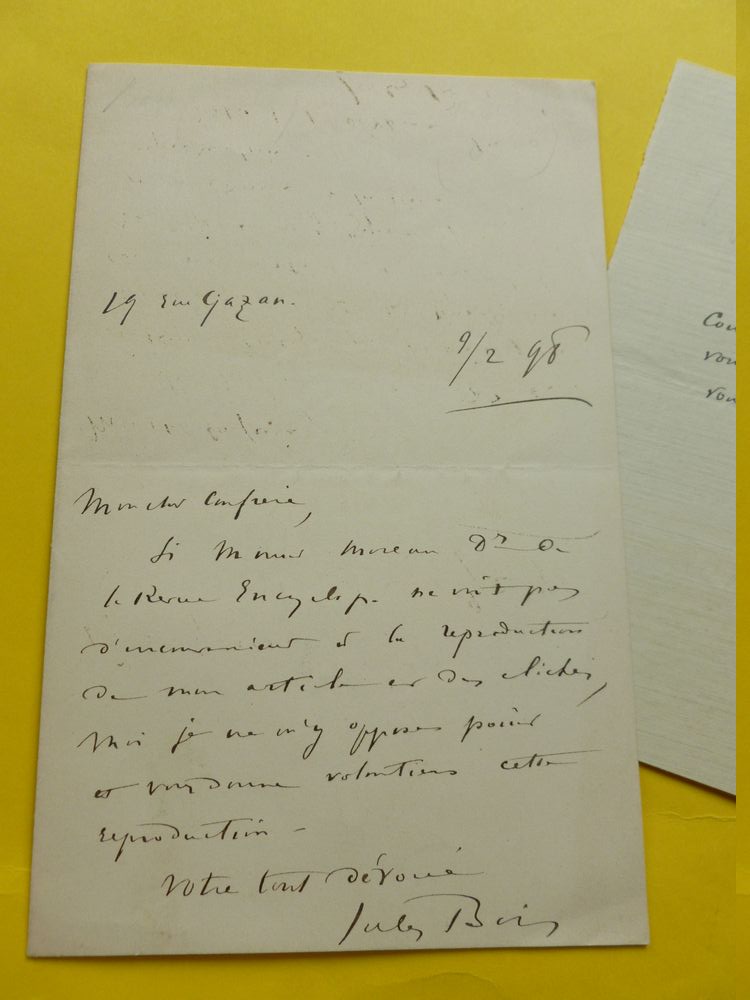 19 rue Gazan.
9/2 98
Mon cher Confrère,
Si Monsr Moreau Dr De
la Revue Encyclop. ne voit pas
d'inconvénient à la reproduction
de mon article et des clichés,
Moi je ne m'y oppose point
et vous donne volontiers cette
reproduction -
Votre tout dévoué
Jules Bois
Con
vou
vou